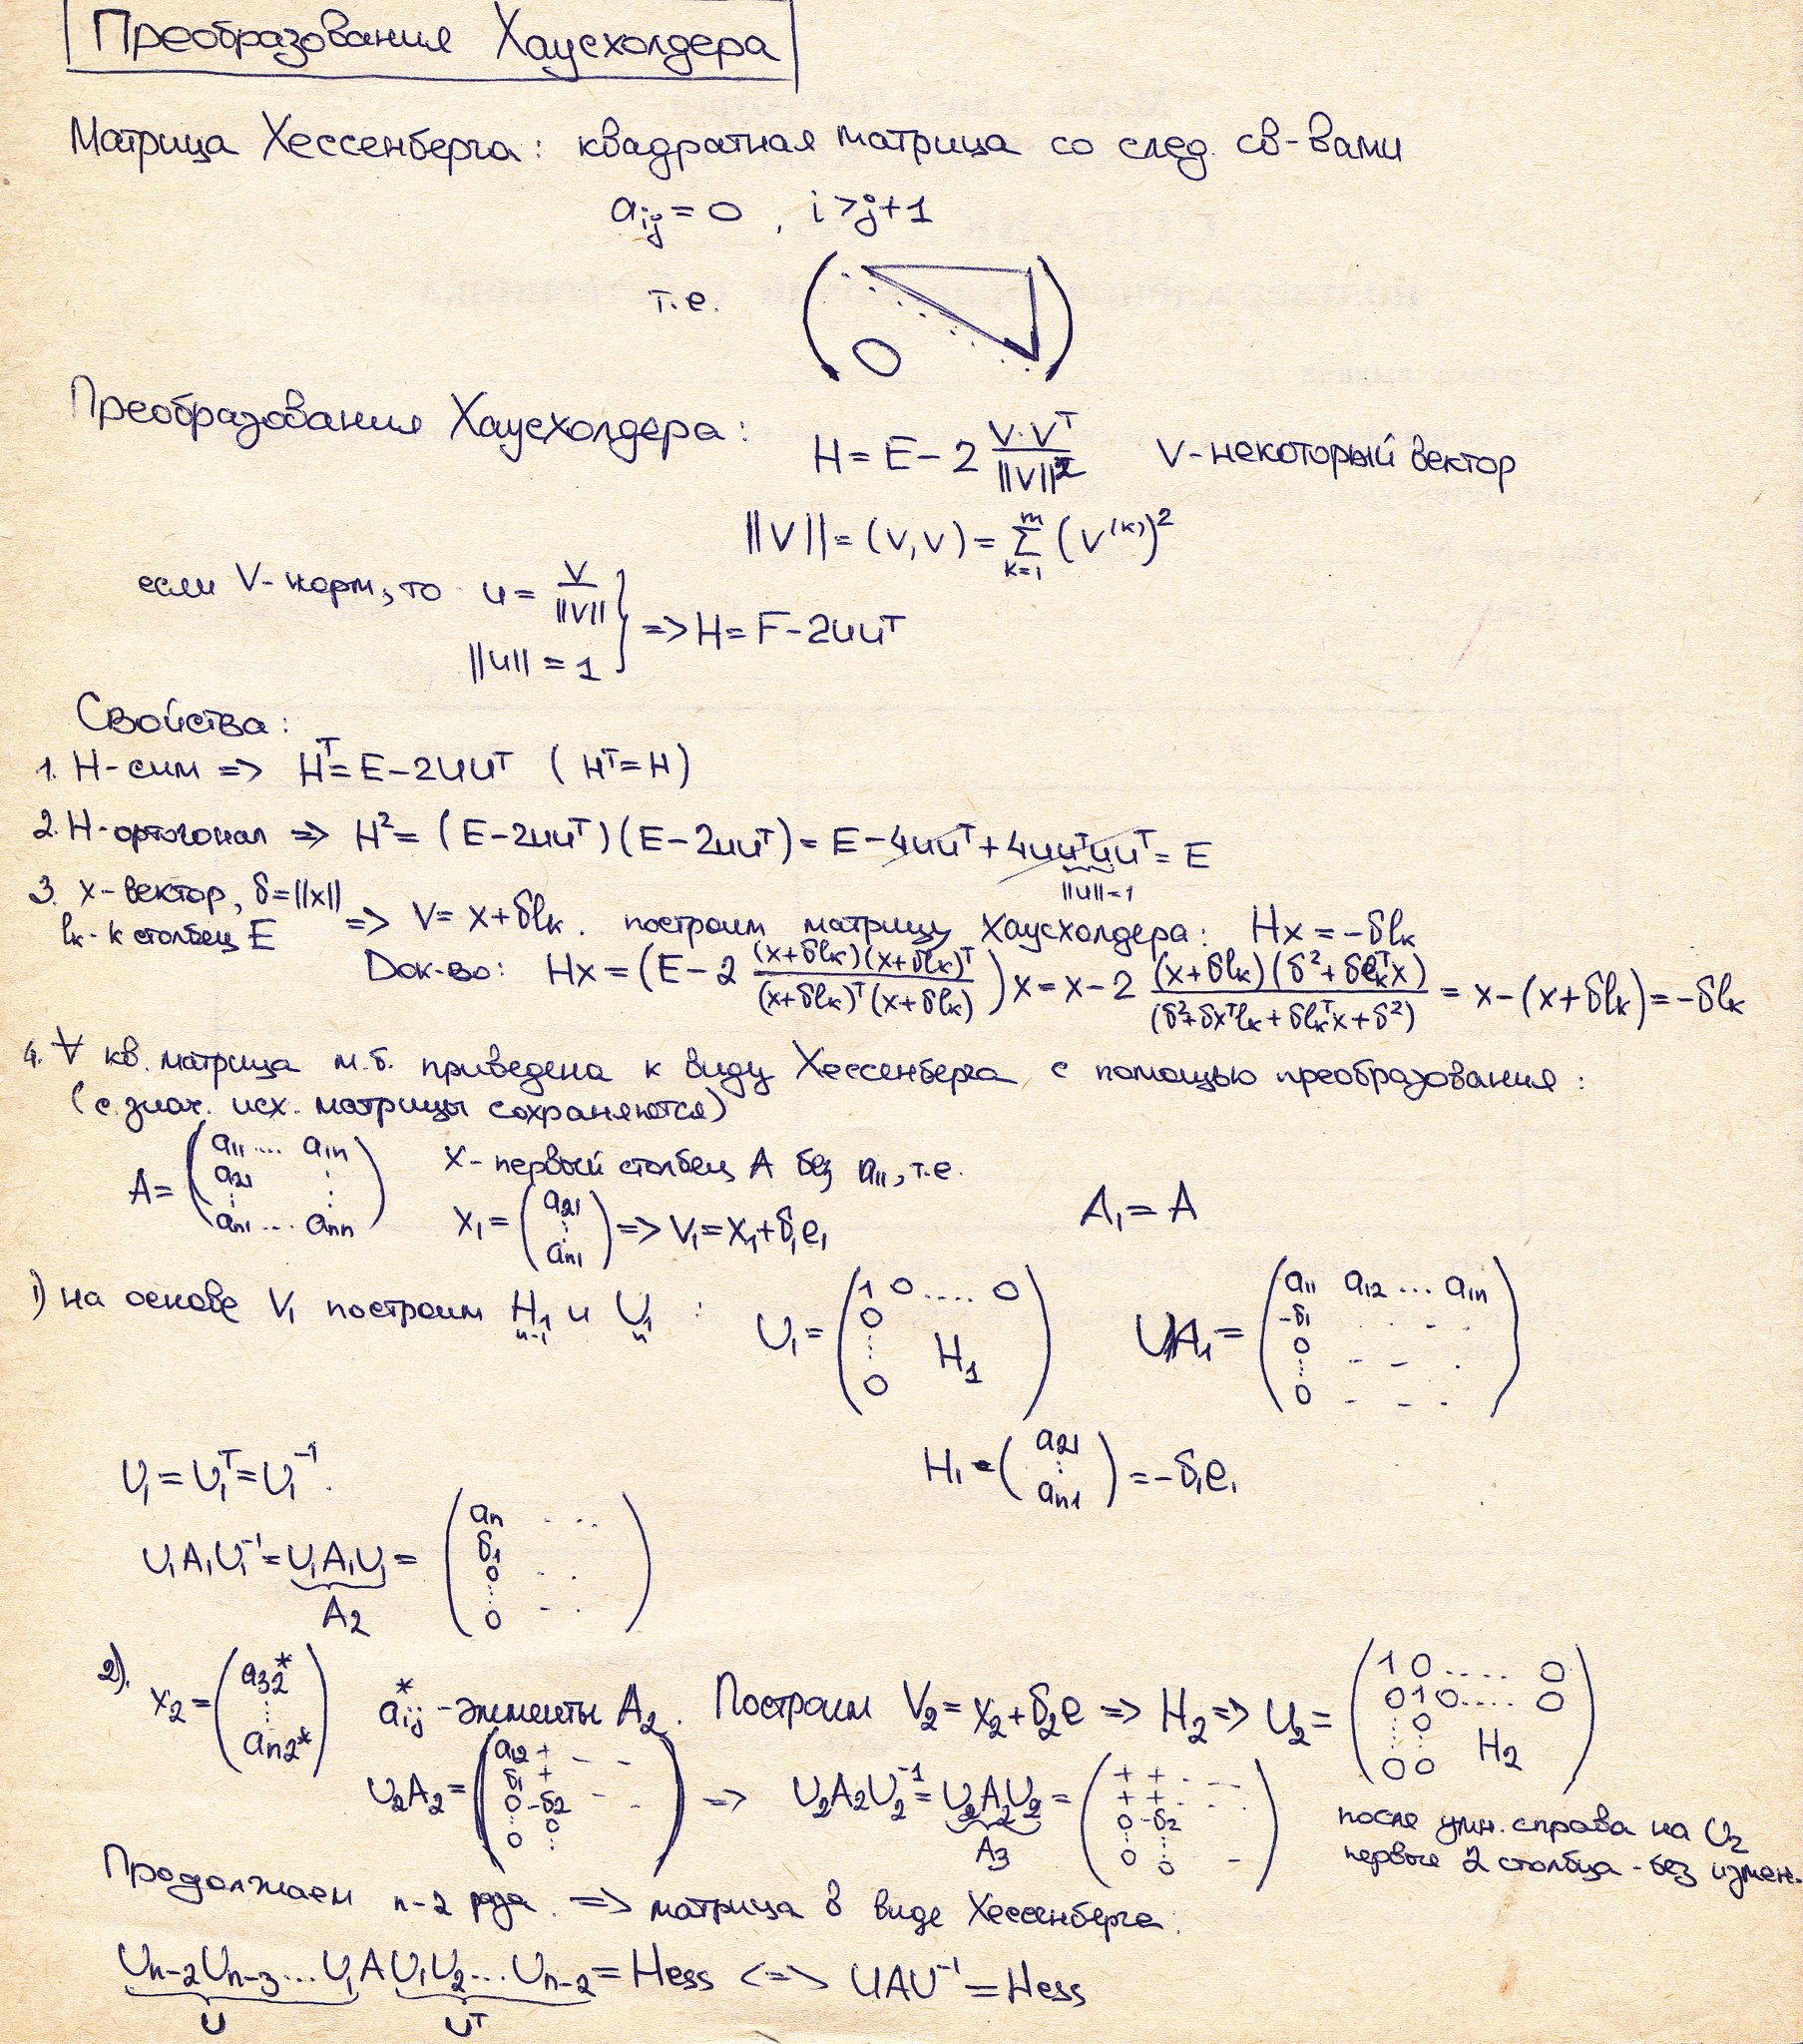 Преобразования Хаусхолдера
Матрица Хессенберга: квадратная матрица со след. св-вами
a_ij = 0 , i > j+1
т.е. ( 0 )
Преобразования Хаусхолдера: H = E - 2 (V·V^T)/||V||^2 V-некоторый вектор
||V|| = (V,V) = Σ_{k=1}^{m} (V^(k))^2
если V-норм, то u = V/||V||
||u|| = 1 } => H = F - 2uu^T
Свойства:
1. H-сим => H^T = E - 2uu^T (H^T = H)
2. H-ортогонал => H^2 = (E - 2uu^T)(E - 2uu^T) = E - 4uu^T + 4uu^Tuu^T = E
||u||=1
3. x-вектор, δ=||x||
l_k - k столбец E => V = x + δl_k. построим матрицу Хаусхолдера: Hx = -δl_k
Док-во: Hx = (E - 2 (x+δl_k)(x+δl_k)^T / (x+δl_k)^T(x+δl_k)) x = x - 2 (x+δl_k)(δ^2+δe_k^Tx) / (δ^2+δx^Tl_k+δl_k^Tx+δ^2) = x - (x+δl_k) = -δl_k
4. ∀ кв. матрица м.б. приведена к виду Хессенберга с помощью преобразования:
(с.знач. исх. матрицы сохраняются)
A = (a_11 .... a_1n
a_21 ⋮
⋮ ⋮
a_n1 .... a_nn)
X - первый столбец A без a_11, т.е.
X_1 = (a_21 ⋮ a_n1) => V_1 = X_1 + δ_1e_1
A_1 = A
1) на основе V_1 построим H_1 и U_1 :
n-1 n
U_1 = (1 0 .... 0
0
⋮ H_1
0)
U_1A_1 = (a_11 a_12 ... a_1n
-δ_1 . - -
0
⋮ - - .
0 - - .)
U_1 = U_1^T = U_1^-1.
H_1 · (a_21 ⋮ a_n1) = -δ_1e_1
U_1A_1U_1^-1 = U_1A_1U_1 = (a_11 . . .
δ_1
0 . .
⋮
0 - .)
A_2
2). X_2 = (a_32* ⋮ a_n2*) a_ij* - элементы A_2. Построим V_2 = X_2 + δ_2e => H_2 => U_2 = (1 0 .... 0
0 1 0 .... 0
⋮ 0
⋮ ⋮ H_2
0 0)
U_2A_2 = (a_12 + - -
δ_1 +
0 -δ_2 - -
⋮ 0
0 ⋮) => U_2A_2U_2^-1 = U_2A_2U_2 = (+ + . -
+ + . .
0 -δ_2
⋮ ⋮
0 0 -)
A_3
после умн. справа на U_2
первые 2 столбца - без измен.
Продолжаем n-2 раза. => матрица в виде Хессенберга:
U_{n-2}U_{n-3}...U_1AU_1U_2...U_{n-2} = Hess <=> UAU^-1 = Hess
U U^T